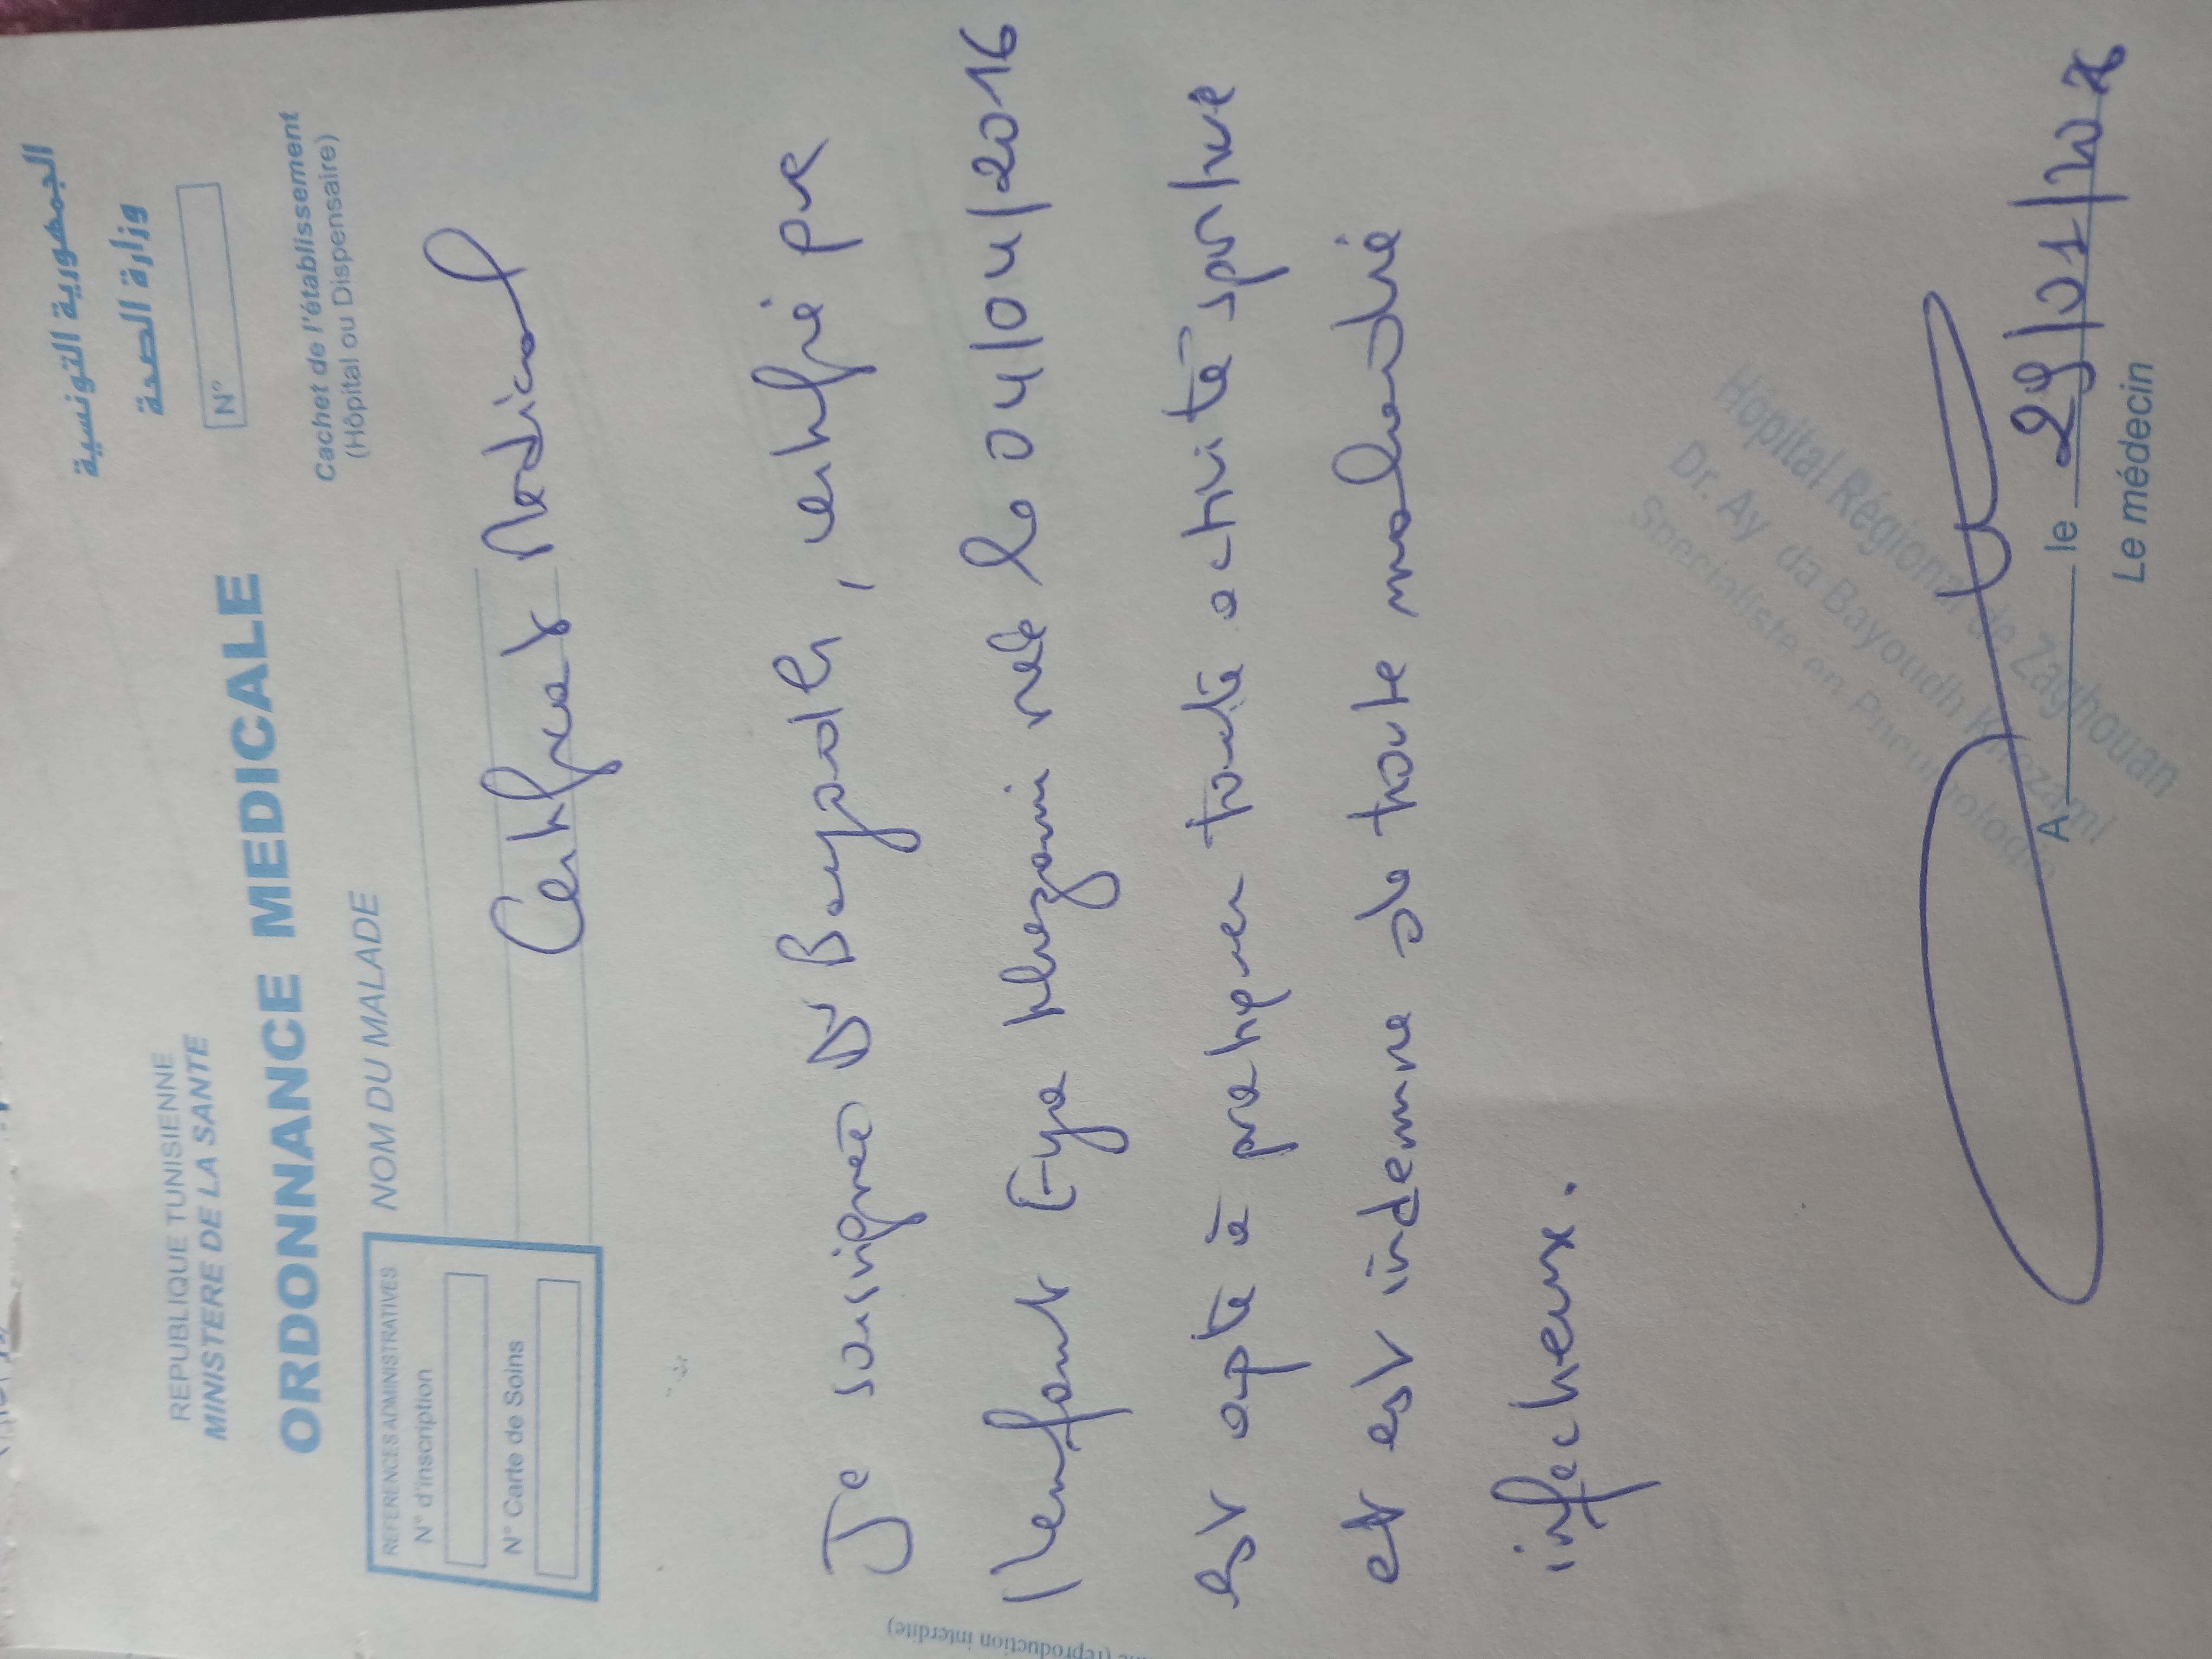 الجمهورية التونسية
وزارة الصحة
REPUBLIQUE TUNISIENNE
MINISTERE DE LA SANTE
N°
ORDONNANCE MEDICALE
Cachet de l'établissement
(Hôpital ou Dispensaire)
REFERENCES ADMINISTRATIVES
N° d'inscription
N° Carte de Soins
NOM DU MALADE
Certificat Medical
Je soussignée Dr Bayoudh, certifie que
l'enfant Eya Khezami née le 04/04/2016
est apte à pratiquer toute activité sportive
et est indemne de toute maladie
infectieuse.
Hôpital Régional de Zaghouan
Dr. Ay da Bayoudh Khezami
Spécialiste en Pneumologie
A le 29/01/
Le médecin
(reproduction interdite)